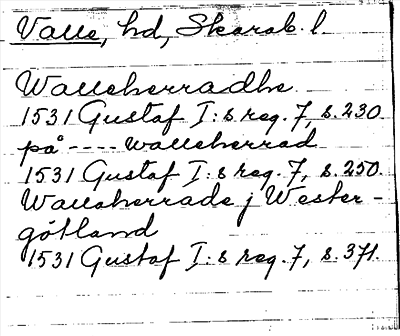 Valle, hd, Skarab. l.
Walleherradhe
1531 Gustaf I:s reg. 7, s. 230.
på ---- walleherrad
1531 Gustaf I:s reg. 7, s. 250.
Walleherrade j Wester-
götland
1531 Gustaf I:s reg. 7, s. 371.